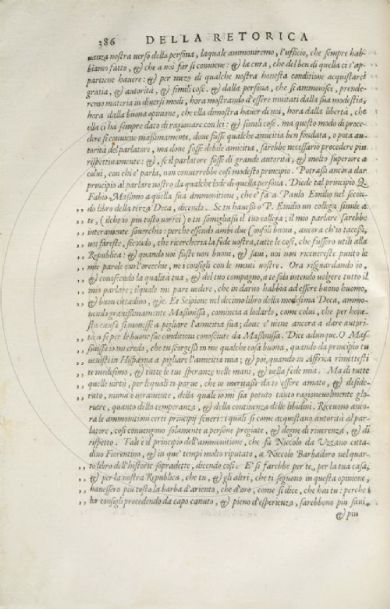 386 DELLA RETORICA
nanza nostra verso della persona, laquale ammoniremo, l'ufficio, che sempre hab-
biamo fatto, & che a noi far si conviene: & la cura, che del ben di quella ci s'ap-
partiene havere: & per mezo di qualche nostra honesta conditione acquistarci
gratia, autorità, & simili cose. & dalla persona, che si ammonisce, prende-
remo materia in diversi modi, hora mostrando d'essere mutati dalla sua modestia,
hora dalla buona opinione, che ella dimostra haver di noi, hora dalla libertà, che
ella ci ha sempre dato di ragionar con lei: & simili cose. ma questo modo di proce-
dere si conviene massimamente, dove fusse qualche amicitia ben fondata, o poca au-
torità del parlatore, ma dove fosse debile amicitia, sarebbe necessario procedere piu
rispettivamente: &, se il parlatore fosse di grande autorità, & molto superiore a
colui, con chi e' parla, non converrebbe così modesto principio. Potrassi ancora dar
principio al parlare nostro da qualche lode di quella persona. Diede tal principio Q.
Fabio Massimo a quella sua ammonitione, che e' fà a Paulo Emilio nel secon-
do libro della terza Deca, dicendo. Se tu havessi o P. Emilio un collega simile a
,, te, (ilche io piu tosto vorrei) o tu somigliassi il tuo collega; il mio parlare sarebbe
,, interamente superchio: perche essendo ambi due Consoli buoni, ancora ch'io tacessi,
,, voi fareste, secondo, che ricercheria la fede vostra, tutte le cose, che fussero utili alla
,, Republica: & quando voi foste non buoni, & savi, voi non ricevereste punto le
,, mie parole con l'orecchie, ne i consigli con le menti vostre. Ora risguardando io,
,, & conoscendo la qualità tua, & del tuo compagno, a te solo intendo volgere tutto il
,, mio parlare; ilquale mi pare vedere, che in darno habbia ad essere buono huomo,
,, & buon cittadino, &c. Et Scipione nel decimo libro della medesima Deca, ammo-
nendo gravissimamente Masinissa, comincia a lodarlo, come colui, che per hone-
sta causa si mosse a pigliare l'amicitia sua; donc'e' viene ancora a dare autori-
tà a se per le buone sue conditioni conosciute da Masinissa. Dice adunque. O Masi-
,, nissa io mi credo, che tu scorgessi in me qualche cosa buona, quando da principio tu
,, venisti in Hispagna a pigliare l'amicitia mia; & poi, quando in Affrica rimettesti
,, te medesimo, & tutte le tue speranze nelle mani, & nella fede mia. Ma di tutte
,, quelle virtù, per lequali ti parve, che io meritassi da te essere amato, & deside-
,, rato, niuna è veramente, della quale io mi sia potuto tanto ragionevolmente glo-
,, riare, quanto della temperanza, & della continenza delle libidini. Ricevono anco-
ra le ammonitioni certi principi severi: iquali si come acquistano autorità al par-
latore, così convengono solamente a persone pregiate, & degne di riverenza, & di
rispetto. Tale è il principio dell'ammonitione, che fà Niccolò da Uzzano citta-
dino Fiorentino, & in que' tempi molto riputato, a Niccolò Barbadoro nel quar-
to libro dell'historie sopradette, dicendo così. E' si farebbe per te, per la tua casa,
,, & per la nostra Republica, che tu, & gli altri, che ti seguono in questa opinione,
,, havessero piu tosto la barba d'ariento, che d'oro, come si dice, che hai tu: perche i
,, lor consigli procedendo da capo canuto, & pieno d'esperienza, sarebbono piu savi,
& piu